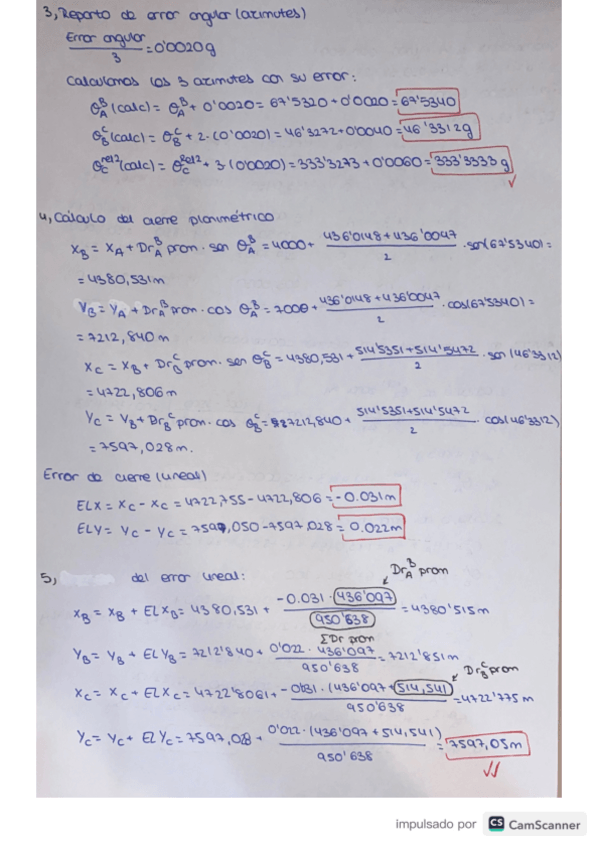 3, Reparto de error angular (azimutes)
Error angular / 3 = 0'0020g
Calculamos los 3 azimutes con su error:
θ_A^B (calc) = θ_A^B + 0'0020 = 67'5320 + 0'0020 = 67'5340
θ_B^C (calc) = θ_B^C + 2·(0'0020) = 46'3272 + 0'0040 = 46'3312g
θ_C^ref2 (calc) = θ_C^Ref2 + 3·(0'0020) = 333'3273 + 0'0060 = 333'3333g
4, Cálculo del cierre planimétrico
X_B = X_A + Dr_A^B prom · sen θ_A^B = 4000 + (436'0148 + 436'0047)/2 · sen(67'5340) =
= 4380,531m
Y_B = Y_A + Dr_A^B prom · cos θ_A^B = 7000 + (436'0148 + 436'0047)/2 · cos(67'5340) =
= 7212,840m
X_C = X_B + Dr_B^C prom · sen θ_B^C = 4380,531 + (514'5351 + 514'5472)/2 · sen (46'3312)
= 4722,806m
Y_C = Y_B + Dr_B^C prom · cos θ_B^C = 7212,840 + (514'5351 + 514'5472)/2 · cos(46'3312)
= 7597,028m.
Error de cierre (lineal)
ELX = X_C - X_C = 4722,755 - 4722,806 = -0.031m
ELY = Y_C - Y_C = 7597,050 - 7597,028 = 0.022m
5, del error lineal:
Dr_A^B prom
X_B = X_B + ELX_B = 4380,531 + (-0.031 · (436'097))/(950'638) = 4380'515m
ΣDr prom
Y_B = Y_B + ELY_B = 7212'840 + (0'022 · 436'097)/950'638 = 7212'851m
Dr_B^C prom
X_C = X_C + ELX_C = 4722'8061 + (-0'031 · (436'097 + 514,541))/950'638 = 4722'775m
Y_C = Y_C + ELY_C = 7597,028 + (0'022 · (436'097 + 514,541))/950'638 = 7597,05m
impulsado por CS CamScanner